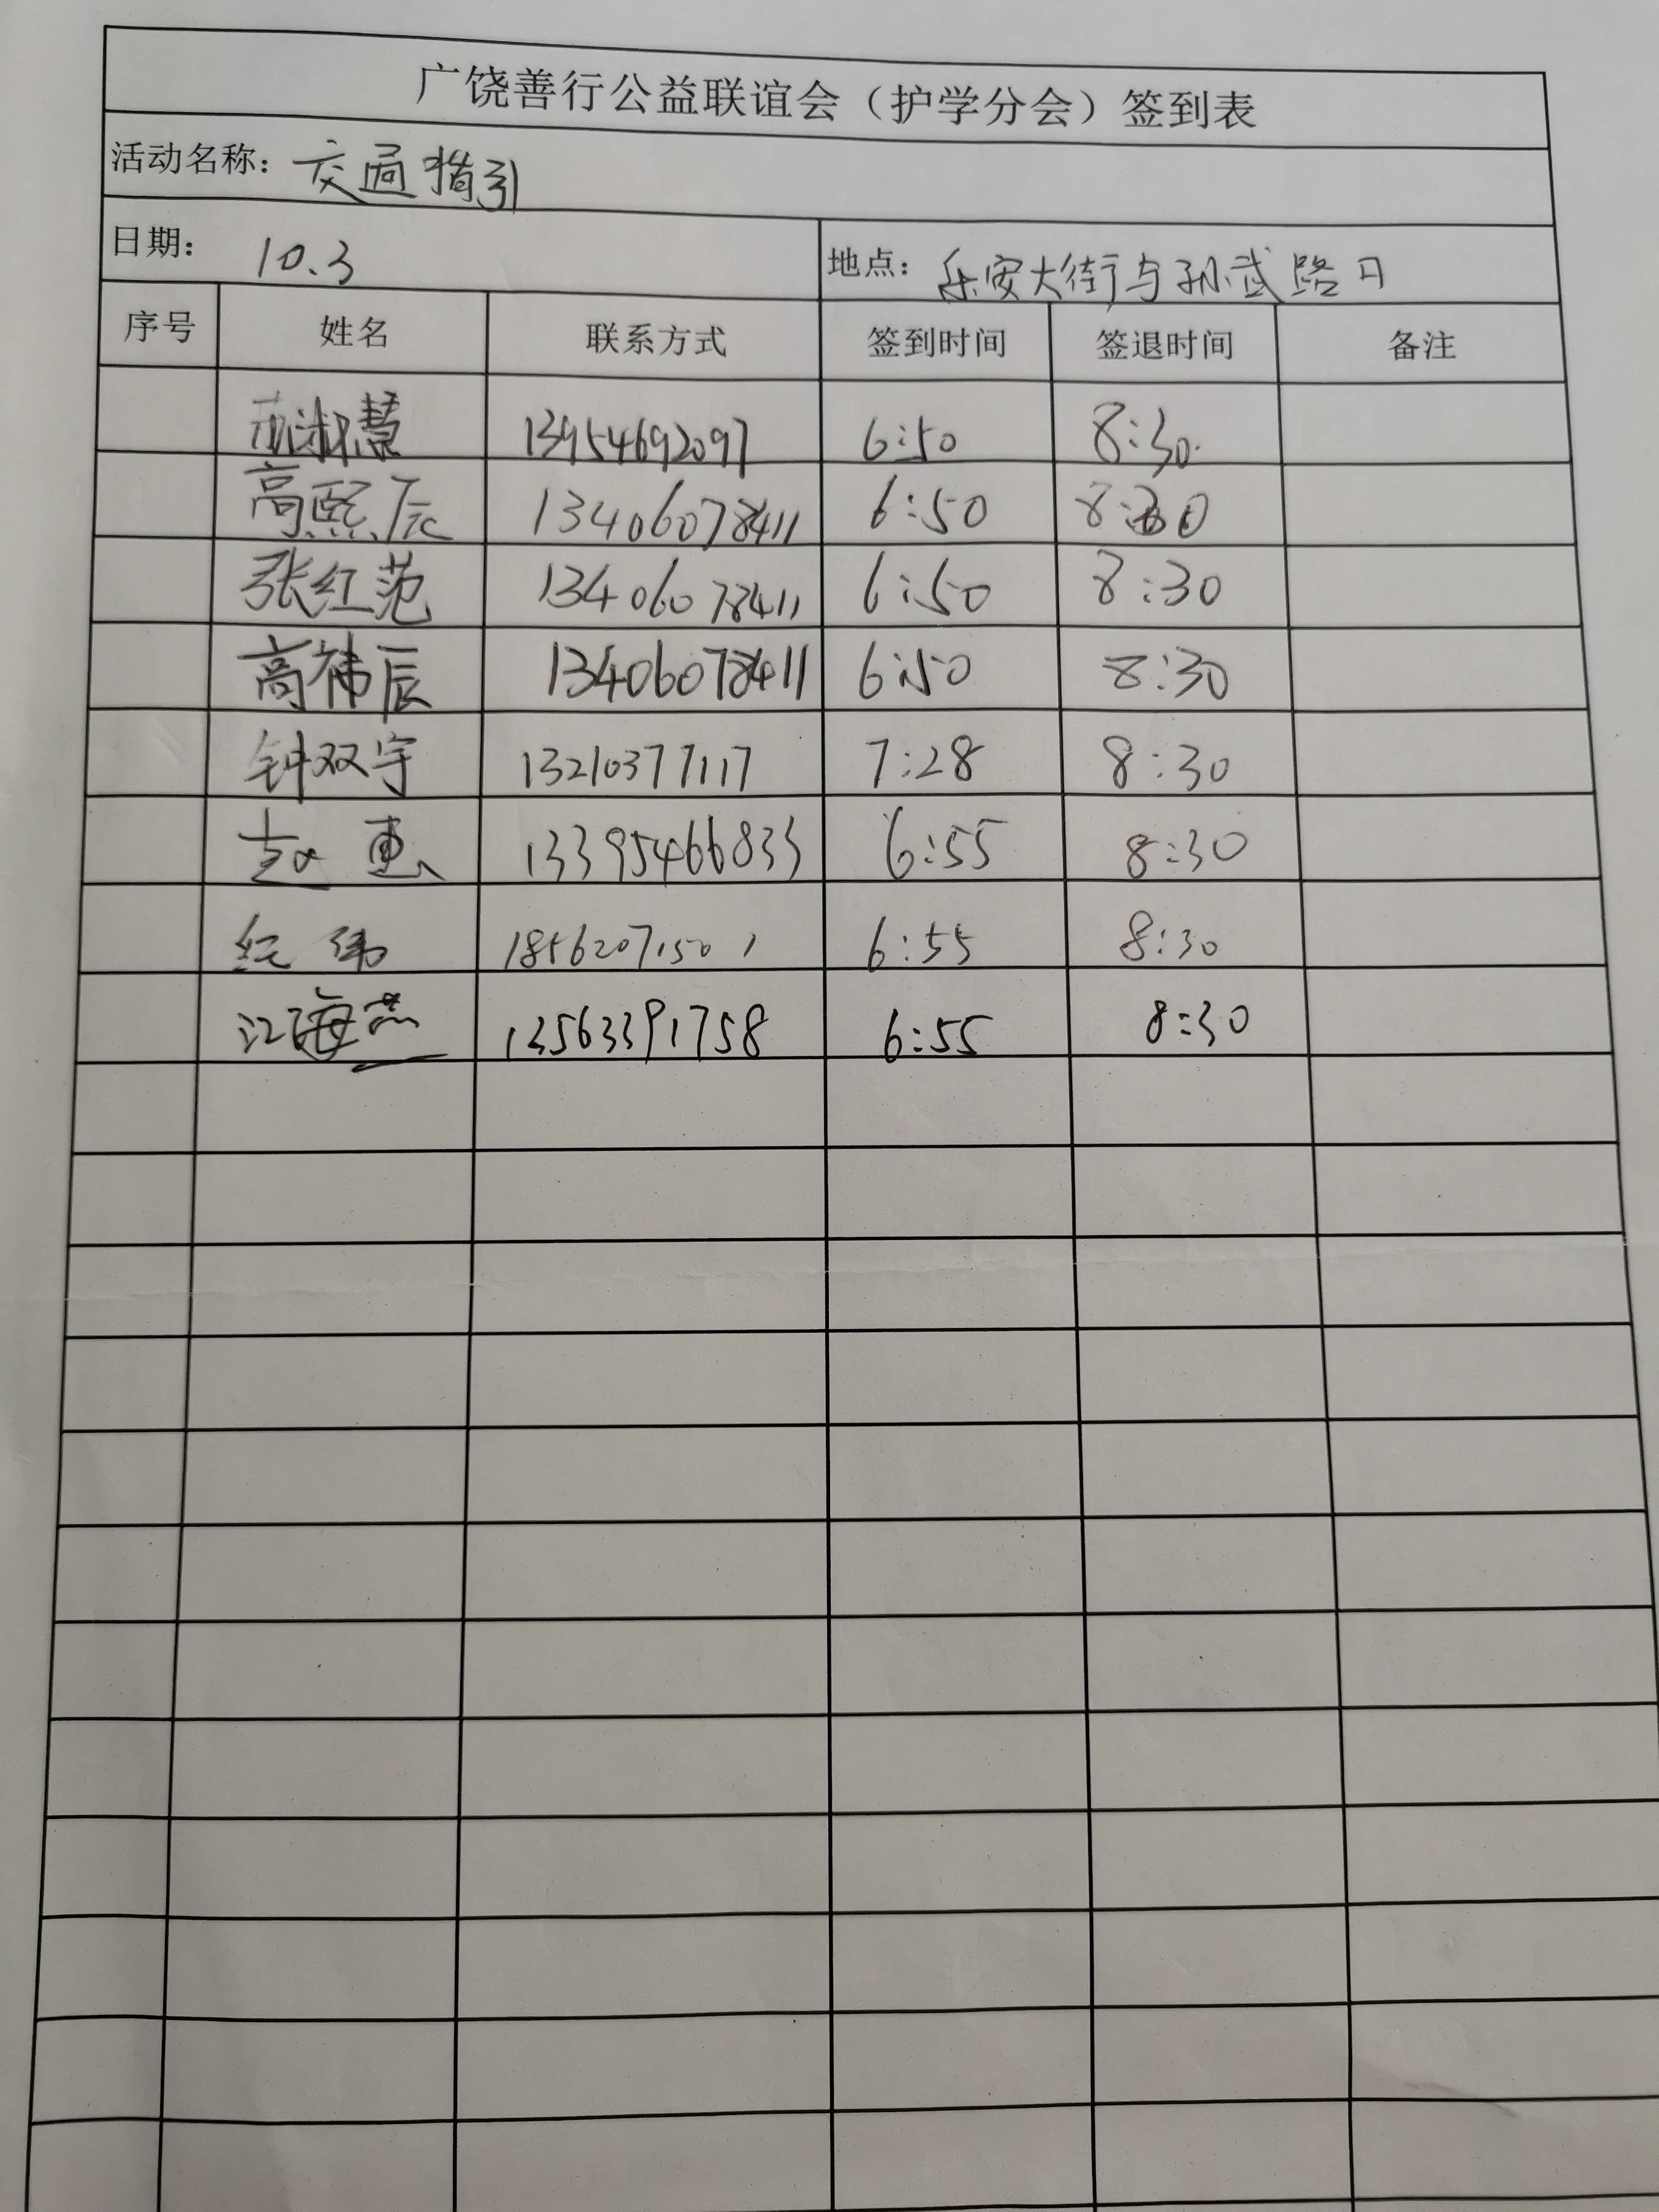 广饶善行公益联谊会（护学分会）签到表
活动名称： 交通指引
日期： 10.3 地点： 乐安大街与孙武路口
序号 姓名 联系方式 签到时间 签退时间 备注
淑慧 13954692097 6:50 8:30
高熙辰 13406078411 6:50 8:30
张红范 13406078411 6:50 8:30
高祎辰 13406078411 6:50 8:30
钟双宇 13210377117 7:28 8:30
赵惠 13395466833 6:55 8:30
纪纬 18562071501 6:55 8:30
江海燕 13563391758 6:55 8:30